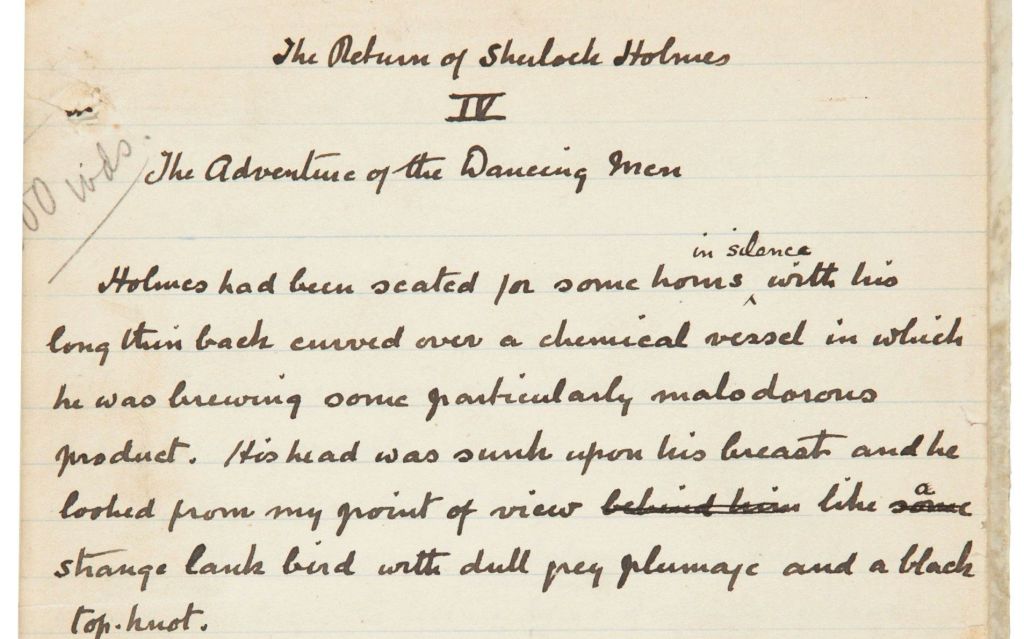 The Return of Sherlock Holmes
IV
The Adventure of the Dancing Men
00 wds.
in silence
Holmes had been seated for some hours ‸ with his
long thin back curved over a chemical vessel in which
he was brewing some particularly malodorous
product. His head was sunk upon his breast and he
a
looked from my point of view behind him like some
strange lank bird with dull grey plumage and a black
top-knot.